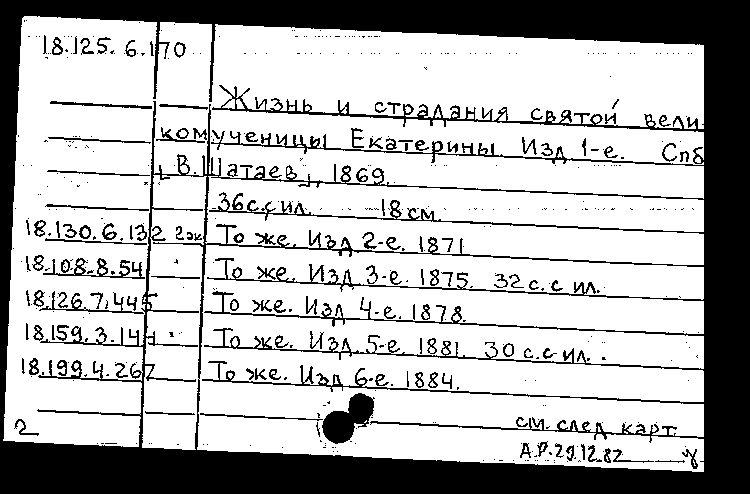 18.125.6.170
Жизнь и страдания святой вели-
комученицы Екатерины. Изд 1-е. Спб
В. Шатаев, 1869.
36с.с ил. 18 см.
18.130.6.132 2эк То же. Изд 2-е. 1871
18.108.8.54 То же. Изд 3-е. 1875. 32 с.с ил.
18.126.7.445 То же. Изд 4-е. 1878.
18.159.3.141 То же. Изд. 5-е. 1881. 30 с.с ил.
18.199.4.267 То же. Изд 6-е. 1884.
см. след. карт.
2 А.Р. 29.12.82